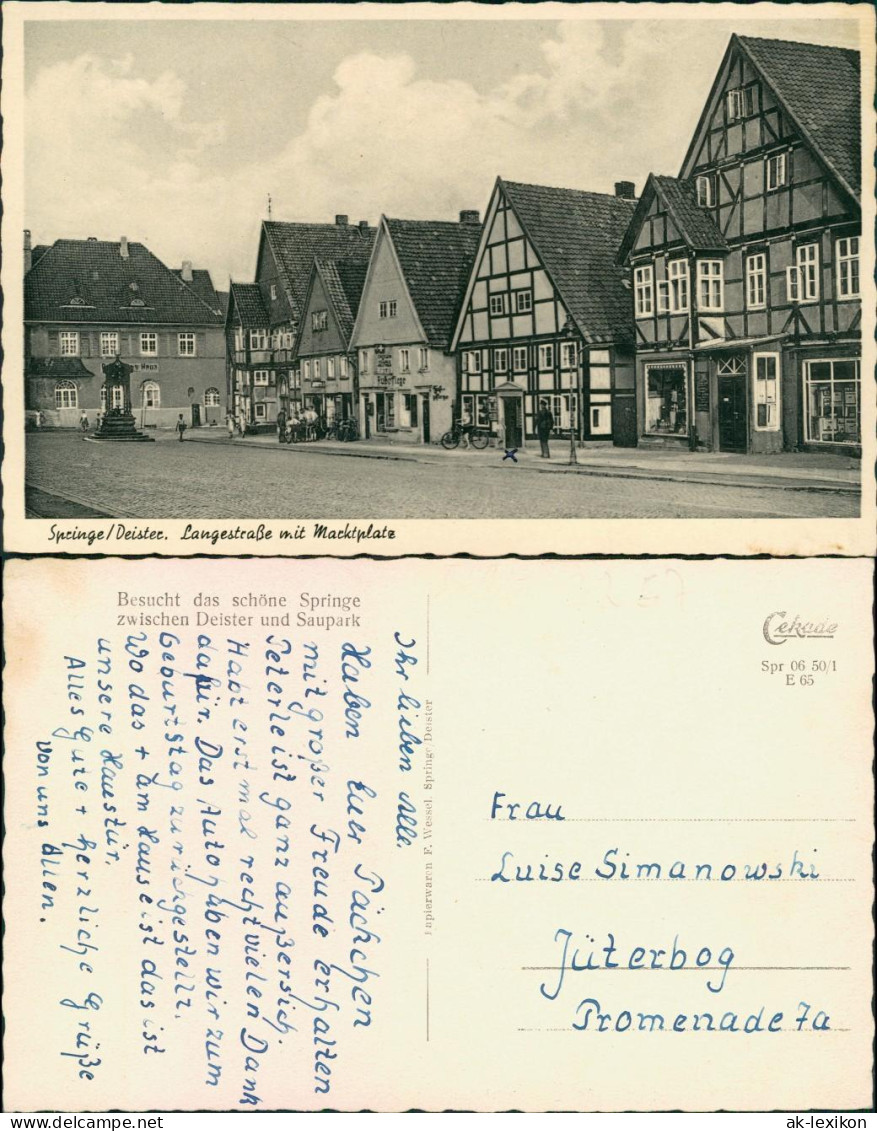 Springe/Deister. Langestraße mit Marktplatz
Besucht das schöne Springe
zwischen Deister und Saupark
Ihr lieben alle
Haben Euer Päckchen
mit großer Freude erhalten
Peterle ist ganz außersich.
Habt erst mal recht vielen Dank
dafür. Das Auto haben wir zum
Geburtstag zurückgestellt.
Wo das + am Hause ist das ist
unsere Haustür.
Alles Gute + herzliche Grüße
von uns Allen.
Papierwaren F. Wessel, Springe Deister
Cekade
Spr 06 50/1
E 65
Frau
Luise Simanowski
Jüterbog
Promenade 7a
ak-lexikon